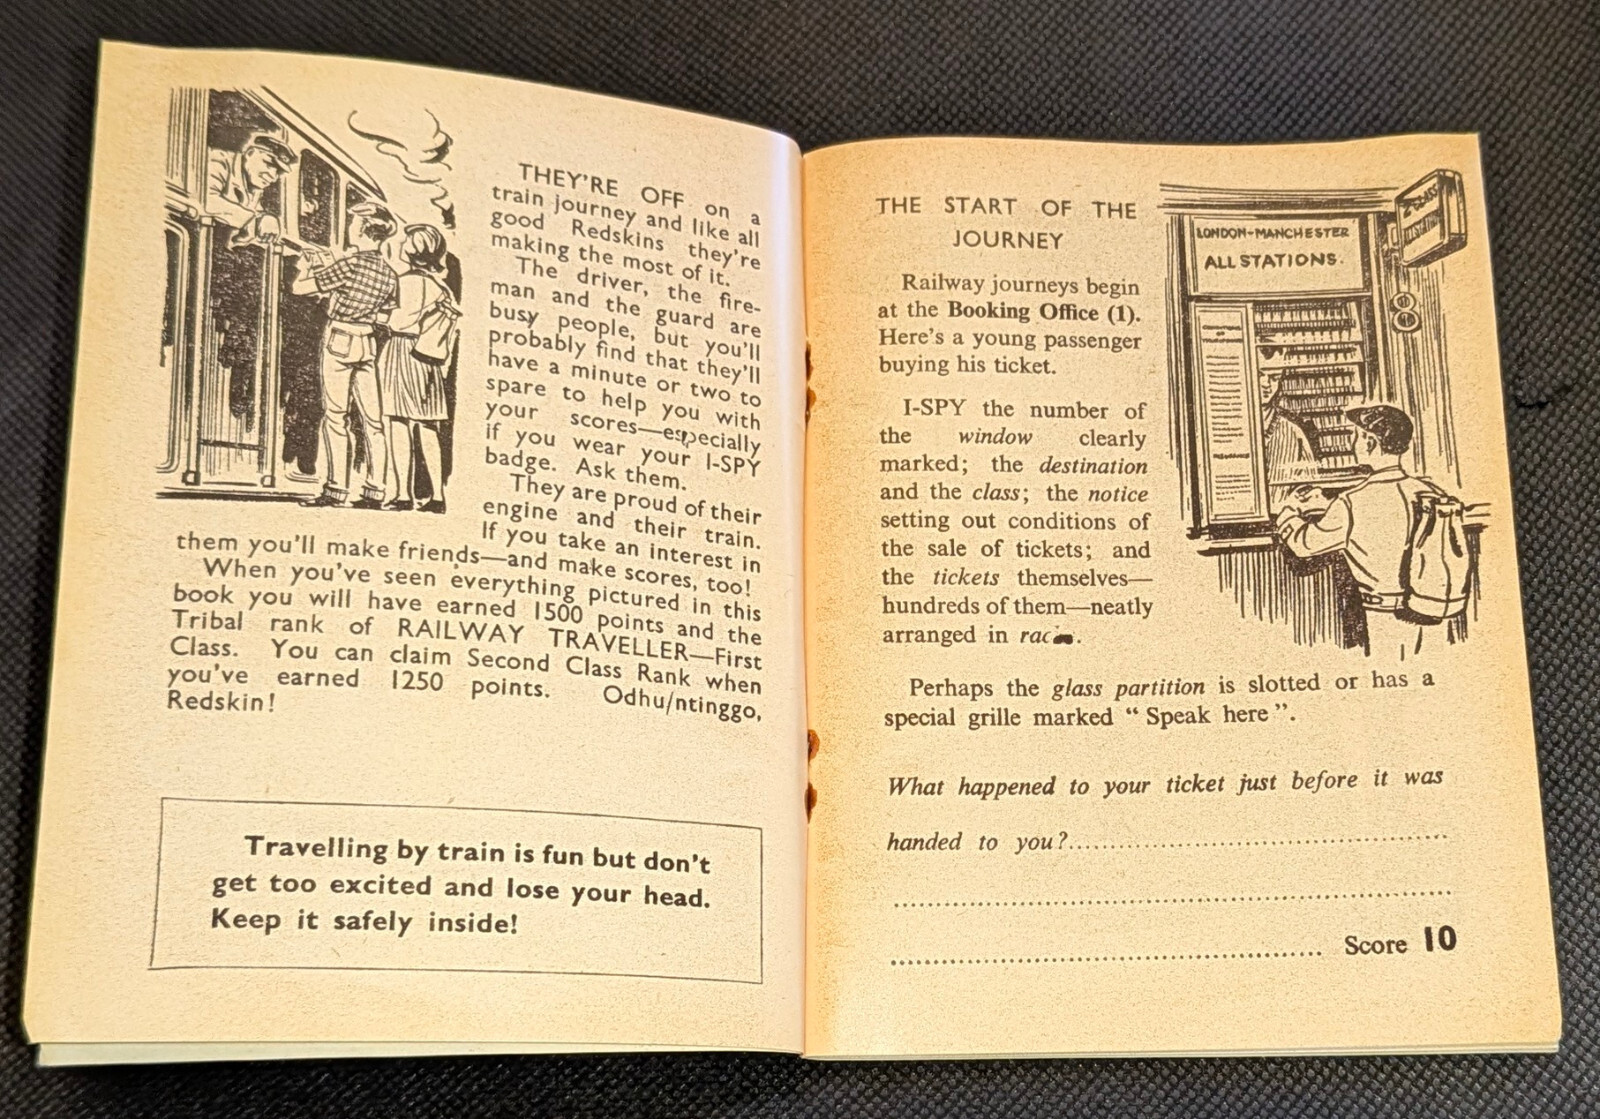 THEY'RE OFF on a
train journey and like all
good Redskins they're
making the most of it.
The driver, the fire-
man and the guard are
busy people, but you'll
probably find that they'll
have a minute or two to
spare to help you with
your scores—especially
if you wear your I-SPY
badge. Ask them.
They are proud of their
engine and their train.
If you take an interest in
them you'll make friends—and make scores, too!
When you've seen everything pictured in this
book you will have earned 1500 points and the
Tribal rank of RAILWAY TRAVELLER—First
Class. You can claim Second Class Rank when
you've earned 1250 points. Odhu/ntinggo,
Redskin!
Travelling by train is fun but don't
get too excited and lose your head.
Keep it safely inside!
THE START OF THE
JOURNEY
Railway journeys begin
at the Booking Office (1).
Here's a young passenger
buying his ticket.
I-SPY the number of
the window clearly
marked; the destination
and the class; the notice
setting out conditions of
the sale of tickets; and
the tickets themselves—
hundreds of them—neatly
arranged in
LONDON-MANCHESTER
ALL STATIONS.
2 CLASS
Perhaps the glass partition is slotted or has a
special grille marked “ Speak here ”.
What happened to your ticket just before it was
handed to you?
Score 10